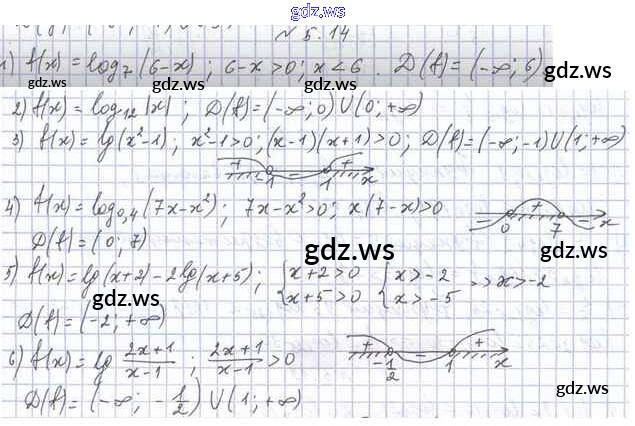 gdz.ws
№ 5.14
1) f(x) = log₇(6-x); 6-x>0; x<6. D(f)=(-∞; 6)
gdz.ws gdz.ws gdz.ws
2) f(x) = log₁₂|x|; D(f)=(-∞; 0)∪(0; +∞)
3) f(x) = lg(x²-1); x²-1>0; (x-1)(x+1)>0; D(f)=(-∞; -1)∪(1; +∞)
+ -1 - 1 + x
4) f(x) = log₀,₄(7x-x²); 7x-x²>0; x(7-x)>0
- 0 + 7 - x
D(f) = (0; 7)
gdz.ws gdz.ws
5) f(x) = lg(x+2)-2lg(x+5); {x+2>0 {x>-2 => x>-2
{x+5>0 {x>-5
gdz.ws
D(f) = (-2; +∞)
6) f(x) = lg (2x+1)/(x-1); (2x+1)/(x-1)>0
+ -1/2 - 1 + x
D(f) = (-∞; -1/2)∪(1; +∞)
gdz.ws gdz.ws gdz.ws